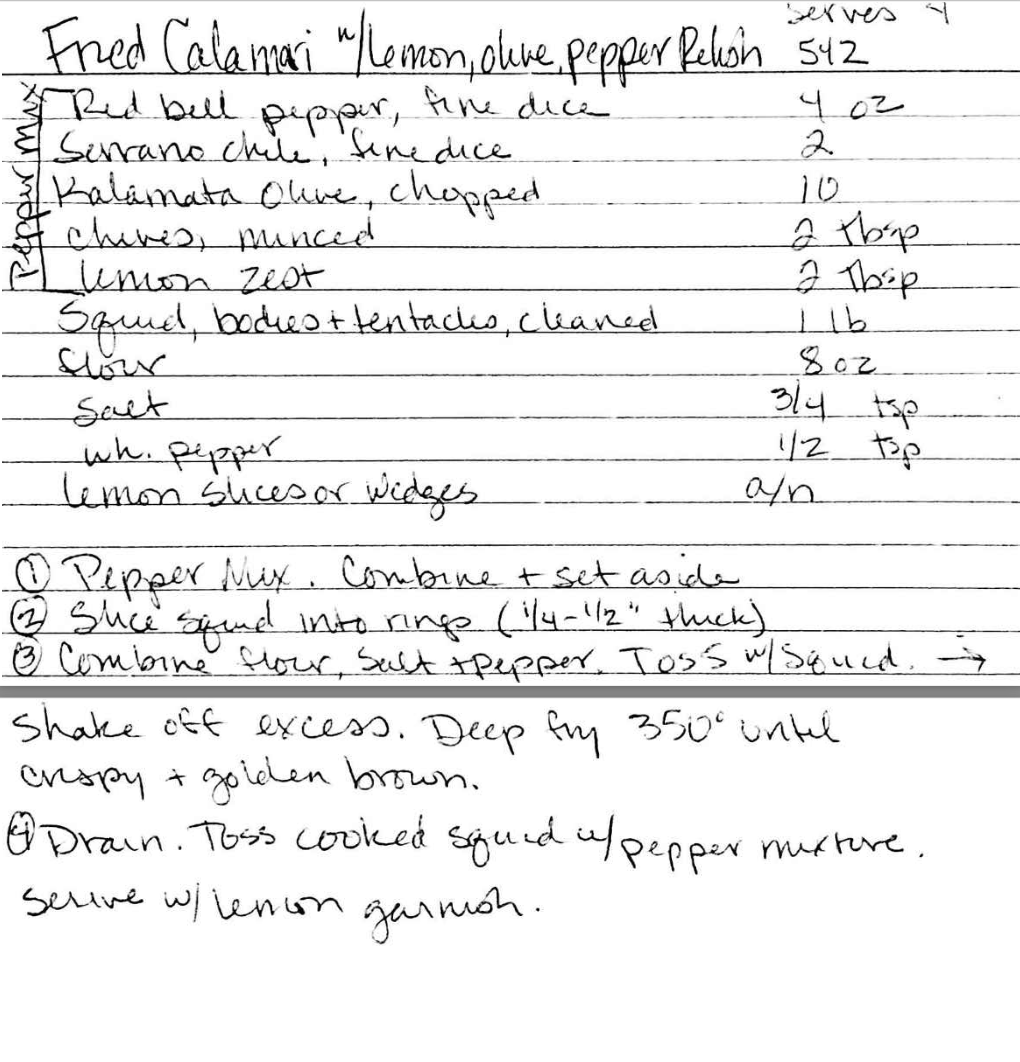 serves 4
Fried Calamari w/lemon, olive, pepper Relish 542
Pepper Mix
Red bell pepper, fine dice 4 oz
Serrano chile, fine dice 2
Kalamata Olive, chopped 10
chives, minced 2 tbsp
lemon zest 2 Tbsp
Squid, bodies + tentacles, cleaned 1 lb
flour 8 oz
Salt 3/4 tsp
wh. pepper 1/2 tsp
lemon slices or wedges a/n
① Pepper Mix. Combine + set aside
② Slice squid into rings (1/4-1/2" thick)
③ Combine flour, salt + pepper. Toss w/ Squid. →
Shake off excess. Deep fry 350° until
crispy + golden brown.
④ Drain. Toss cooked squid w/ pepper mixture.
Serve w/ lemon garnish.